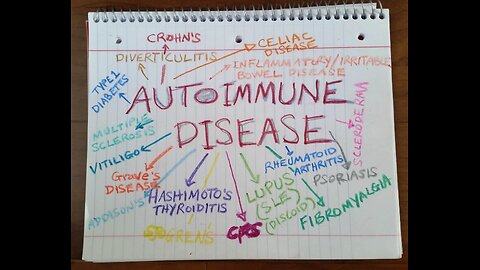 CROHN'S
CELIAC
DISEASE
DIVERTICULITIS
INFLAMMATORY/IRRITABLE
BOWEL DISEASE
TYPE 1
DIABETES
AUTOIMMUNE
DISEASE
SCLERODERMA
MULTIPLE
SCLEROSIS
VITILIGO
RHEUMATOID
ARTHRITIS
PSORIASIS
GRAVE'S
DISEASE
HASHIMOTO'S
THYROIDITIS
LUPUS
(SLE)
(DISCOID)
FIBROMYALGIA
ADDISON'S
SJOGREN'S
CFS